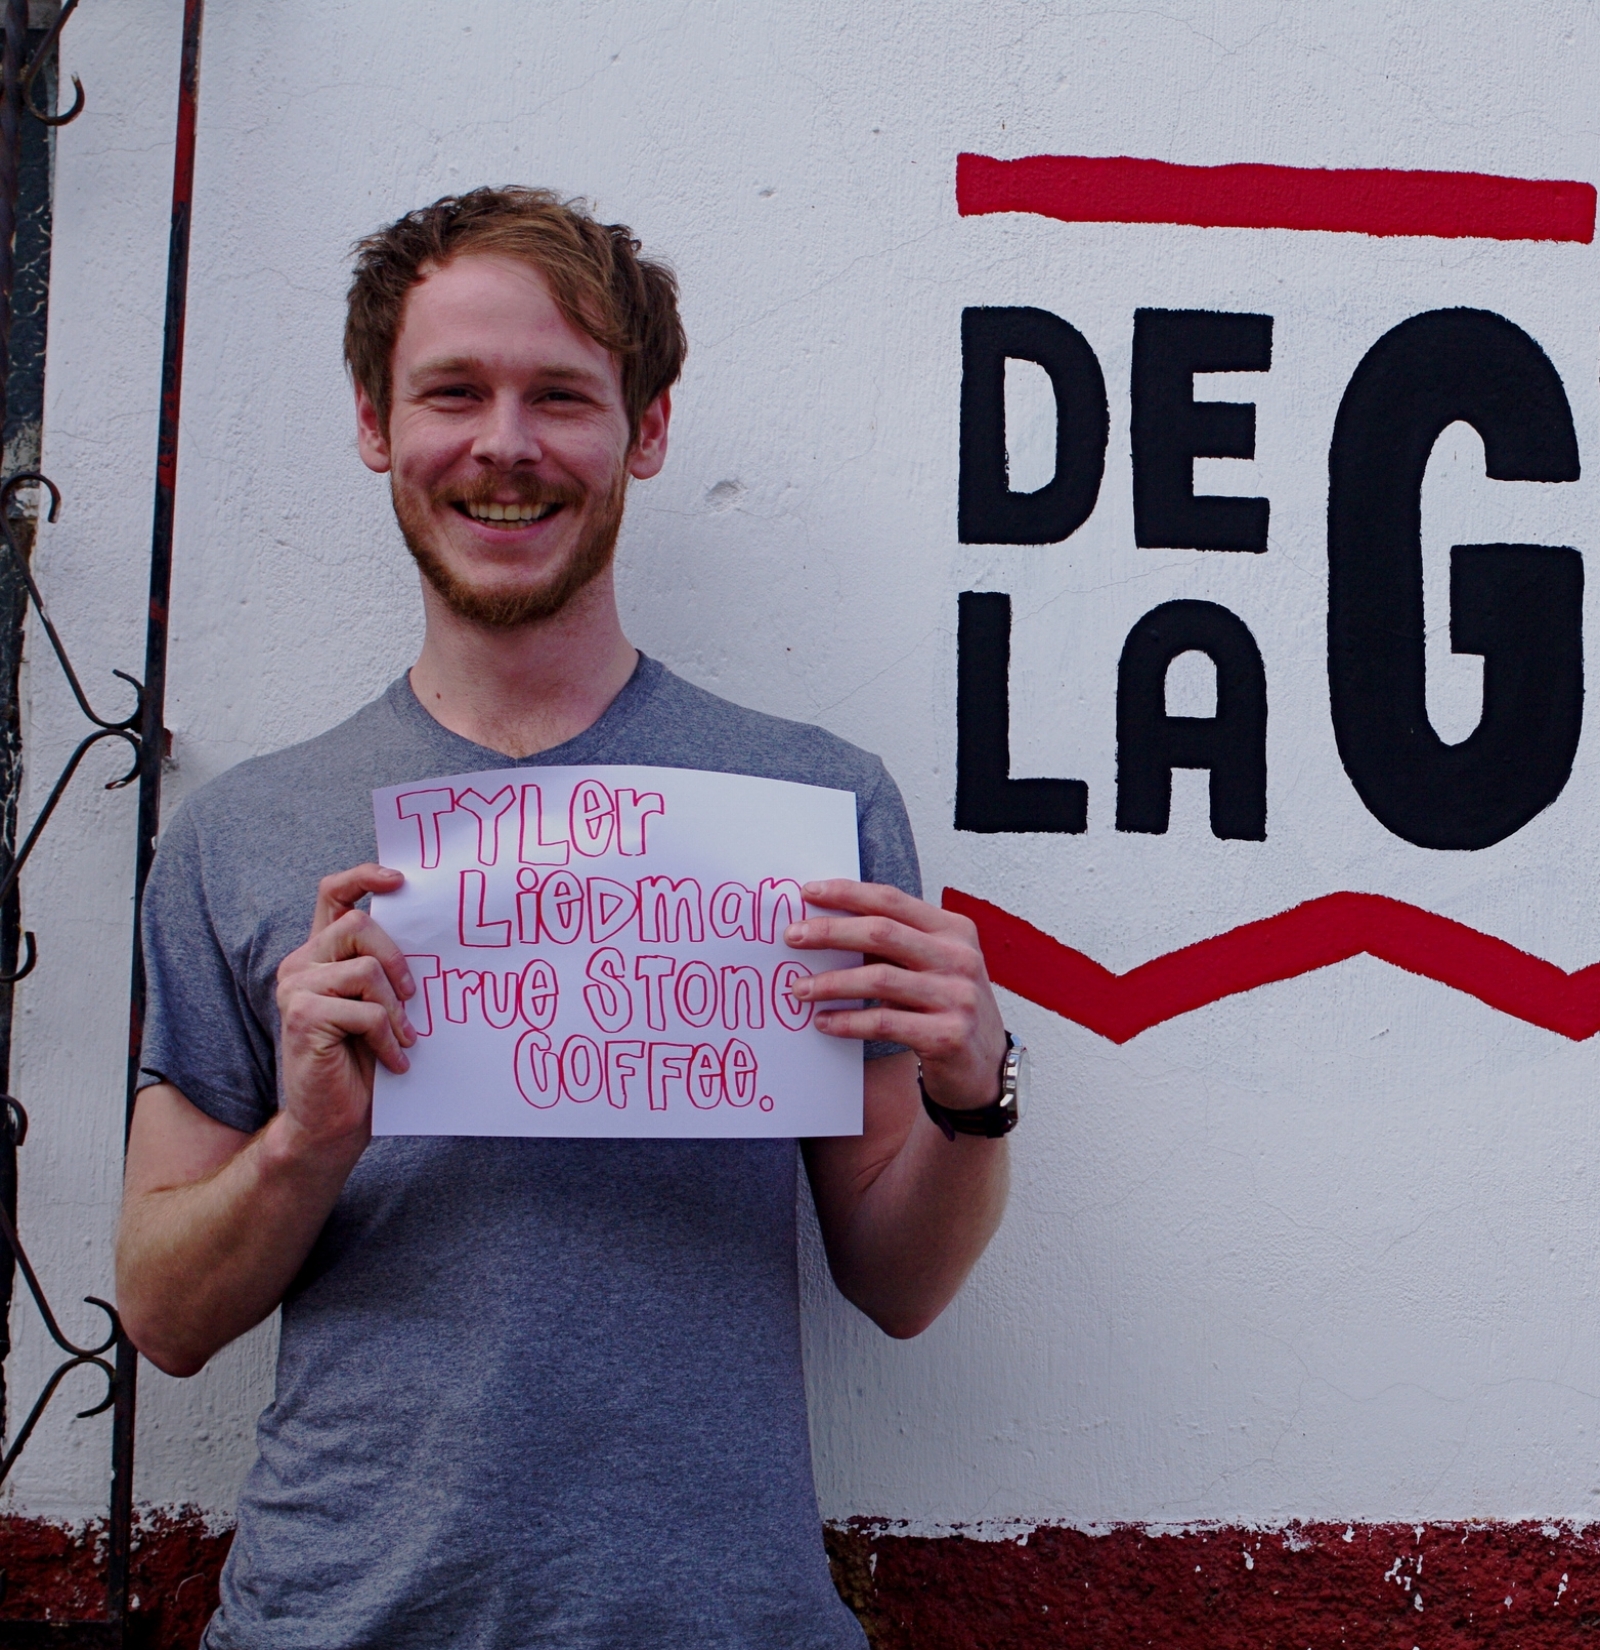 TYLer
LieDman
True STone
COFFee.
DE
LA
G